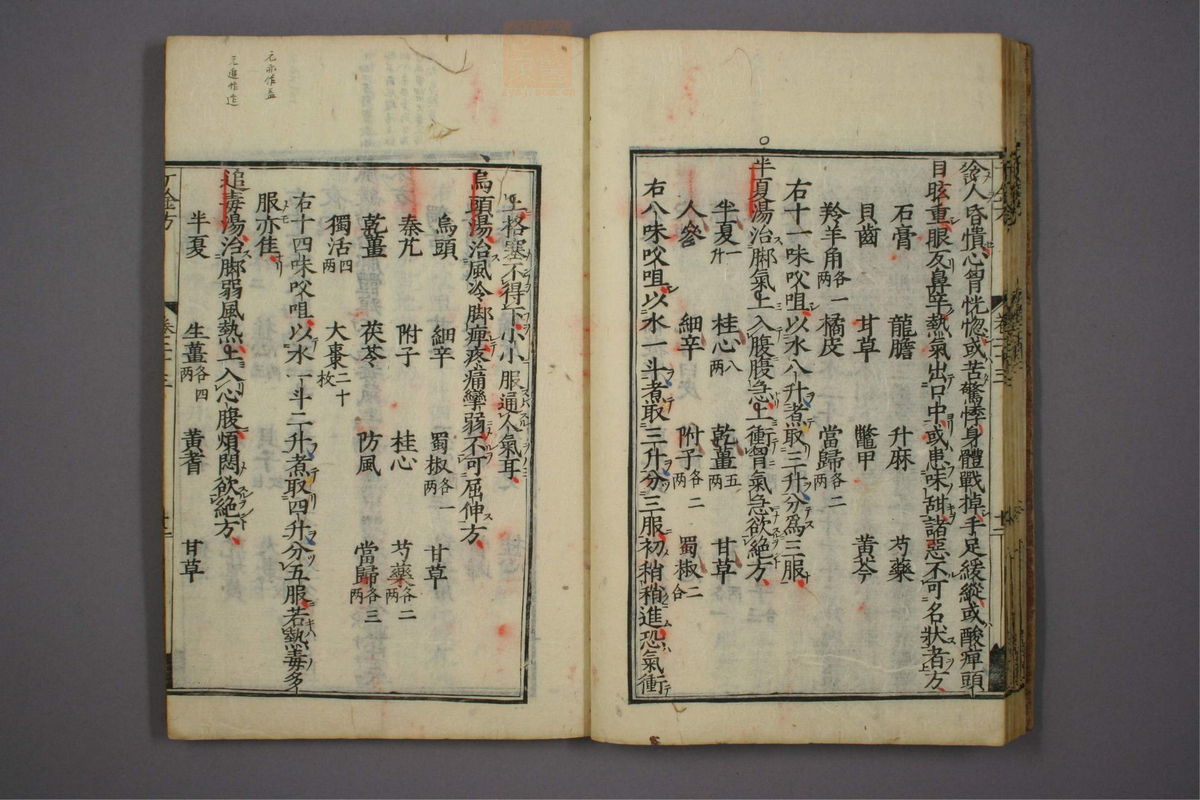 飱人昏憒心胷恍惚或苦驚悸身體戰掉手足緩縱或酸痺頭
目眩重眼反鼻辛熱氣出口中或患味甜諸惡不可名狀者方
石膏 龍膽 升麻 芍藥
貝齒 甘草 鼈甲 黃芩
羚羊角 橘皮各一兩 當歸各二兩
右十一味㕮咀以水八升煮取三升分爲三服
半夏湯治脚氣上入腹腹急上衝胷氣急欲絕方
半夏一升 桂心八兩 乾薑五兩 甘草
人參 細辛 附子各二兩 蜀椒二合
右八味㕮咀以水一斗煮取三升分三服初稍稍進恐氣衝
上格塞不得下小小服通人氣耳
烏頭湯治風冷脚痺疼痛攣弱不可屈伸方
烏頭 細辛 蜀椒各一兩 甘草
秦艽 附子 桂心 芍藥各二兩
乾薑 茯苓 防風 當歸各三兩
獨活四兩 大棗二十枚
右十四味㕮咀以水一斗二升煮取四升分五服若熱毒多
服亦佳
追毒湯治脚弱風熱上入心腹煩悶欲絕方
半夏 生薑各四兩 黃耆 甘草